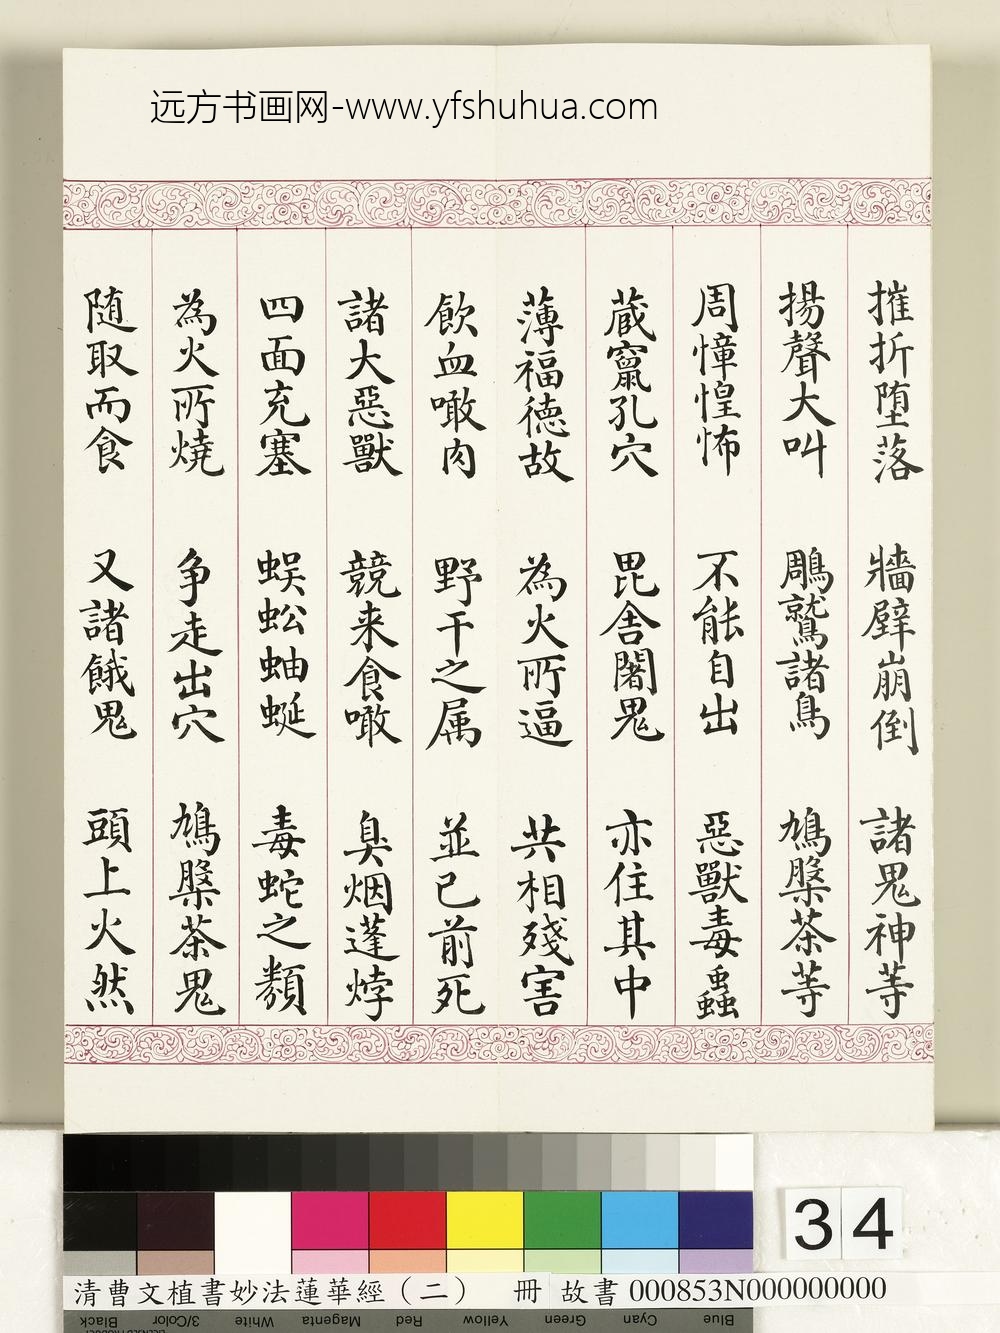 远方书画网-www.yfshuhua.com
摧折堕落 牆壁崩倒 諸鬼神等
揚聲大叫 鵰鷲諸鳥 鳩槃茶等
周慞惶怖 不能自出 惡獸毒蟲
蔵竄孔穴 毘舍闍鬼 亦住其中
薄福徳故 為火所逼 共相殘害
飲血噉肉 野干之属 並已前死
諸大惡獸 競来食噉 臭烟蓬㶿
四面充塞 蜈蚣蚰蜒 毒蛇之類
為火所燒 争走出穴 鳩槃茶鬼
随取而食 又諸餓鬼 頭上火然
34
清曹文植書妙法蓮華經（二） 冊 故書000853N000000000
Black 3/Color White Magenta Red Yellow Green Cyan Blue